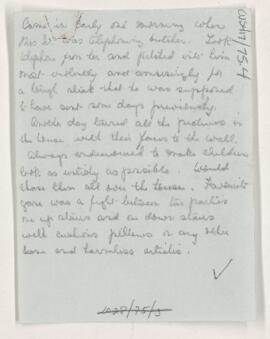 Came in early one morning when
Mrs W. was telephoning butcher. Took
telephone from her and pitched into him
most violently and convincingly for
a tough steak that he was supposed
to have sent some days previously.
Another day turned all the pictures in
the house with their faces to the wall.
Always endeavoured to make children
look as untidy as possible. Would
chase them all over the house. Favourite
game was a fight between two parties
one up stairs and one down stairs
with cushions pillows or any other
loose and harmless articles.